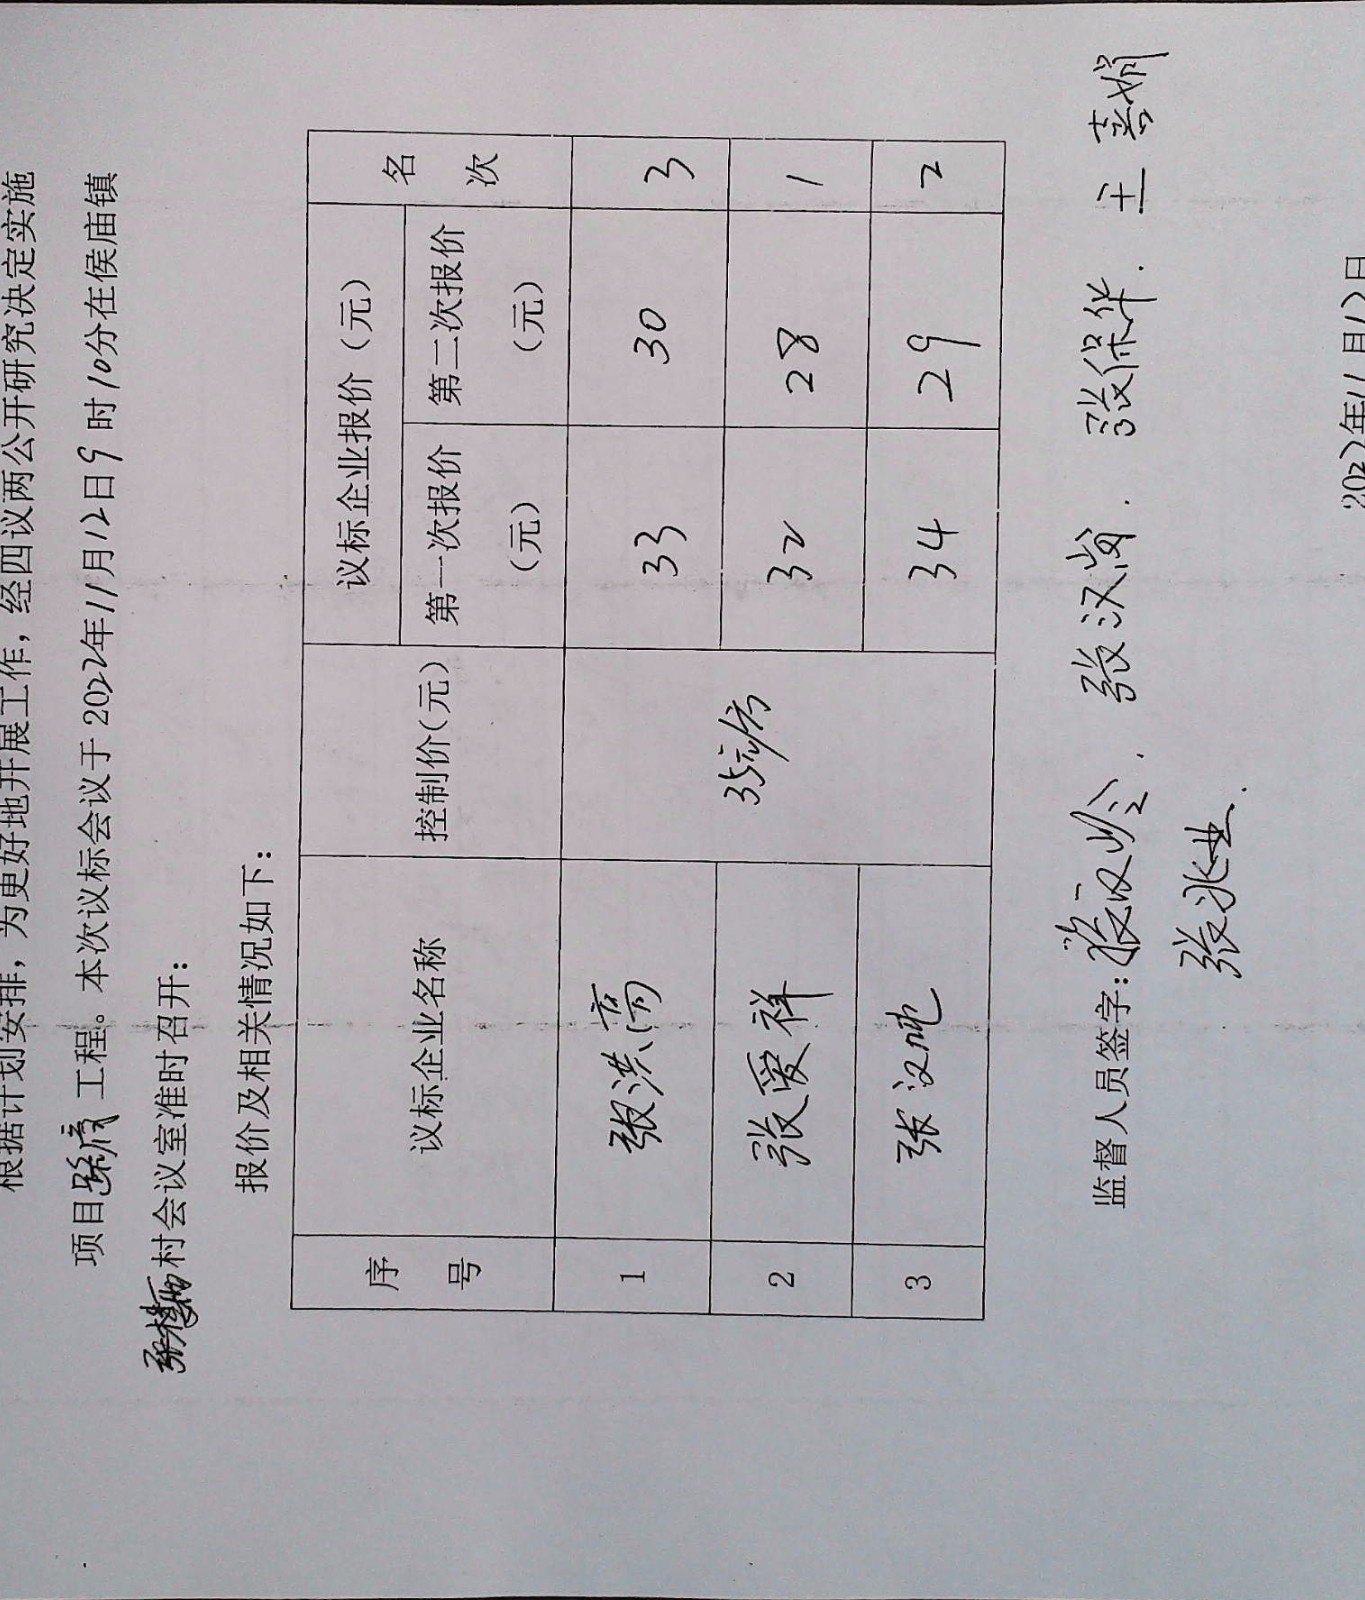 根据计划安排，为更好地开展工作，经四议两公开研究决定实施
项目 工程。本次议标会议于2022年11月12日9时10分在侯庙镇
村会议室准时召开：
报价及相关情况如下：
序号 议标企业名称 控制价(元) 议标企业报价（元） 名次
第一次报价（元） 第二次报价（元）
1 张洪高 35元/方 33 30 3
2 张爱祥 32 28 1
3 张汉 34 29 2
监督人员签字：张汉岭．张汉岗．张保华．王 娟
张兆业．
2022年11月12日